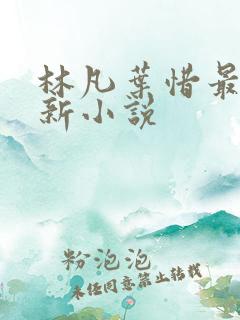 林凡葉惜最
新小説
粉泡泡
未经同意禁止转载